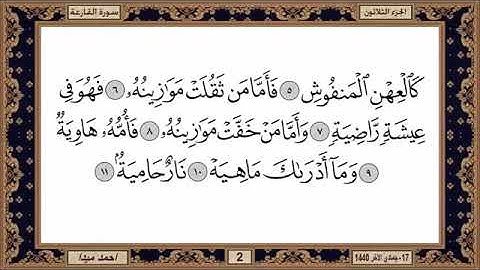 الجزء الثلاثون
سورة القارعة
كَٱلْعِهْنِ ٱلْمَنفُوشِ ٥ فَأَمَّا مَن ثَقُلَتْ مَوَٰزِينُهُۥ ٦ فَهُوَ فِى
عِيشَةٍ رَّاضِيَةٍ ٧ وَأَمَّا مَنْ خَفَّتْ مَوَٰزِينُهُۥ ٨ فَأُمُّهُۥ هَاوِيَةٌ
٩ وَمَآ أَدْرَىٰكَ مَا هِيَهْ ١٠ نَارٌ حَامِيَةٌۢ ١١
17-جمادي الآخر 1440
2
أحمد ميدا